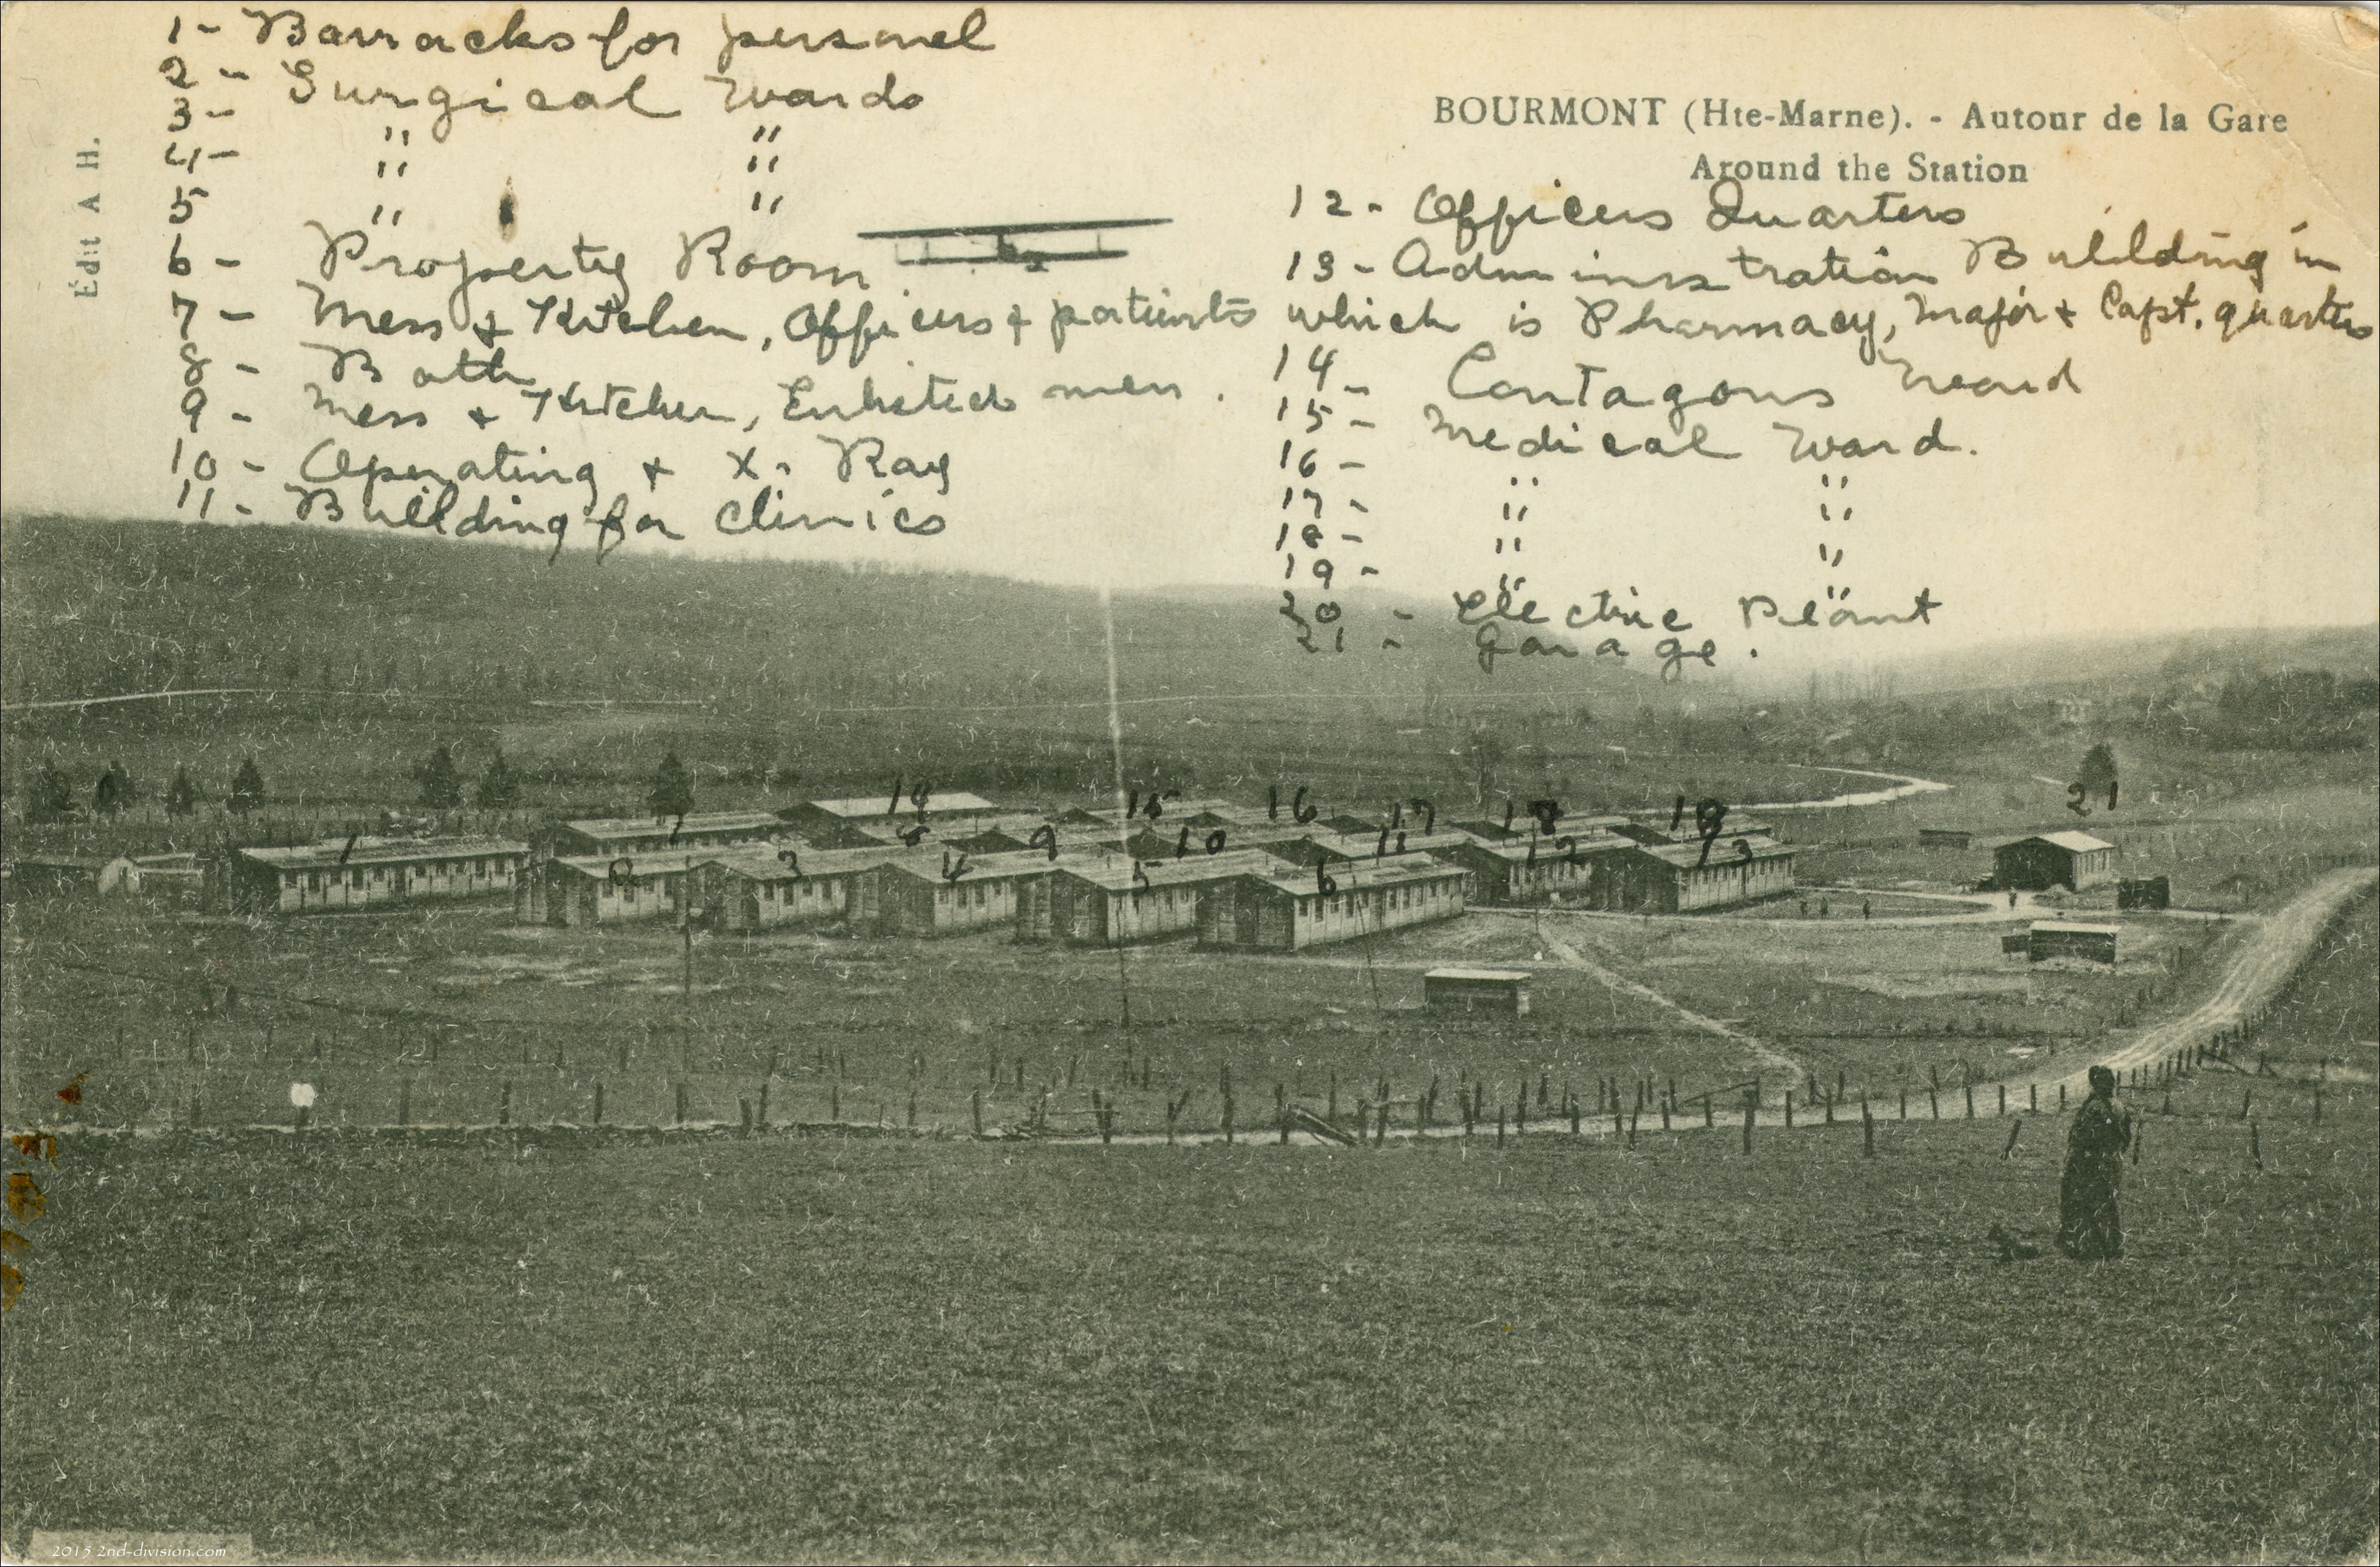 1 - Barracks for personel
2 - Surgical Wards
3 - " "
4 - " "
5 " "
6 - Property Room
7 - Mess & Kitchen, Officers & patients
8 - Bath
9 - Mess & Kitchen, Enlisted men.
10 - Operating & X-Ray
11 - Building for clinics
Édit A H.
BOURMONT (Hte-Marne). - Autour de la Gare
Around the Station
12 - Officers Quarters
13 - Administration Building in
which is Pharmacy, Major & Capt. quarters
14 - Contagous Ward
15 - Medical Ward.
16 - " "
17 - " "
18 - " "
19 - " "
20 - Electric Plant
21 - Garage.
20
14 15 16 17 18 19 21
7 8 9 10 11 12 13
1 2 3 4 5 6
2015 2nd-division.com